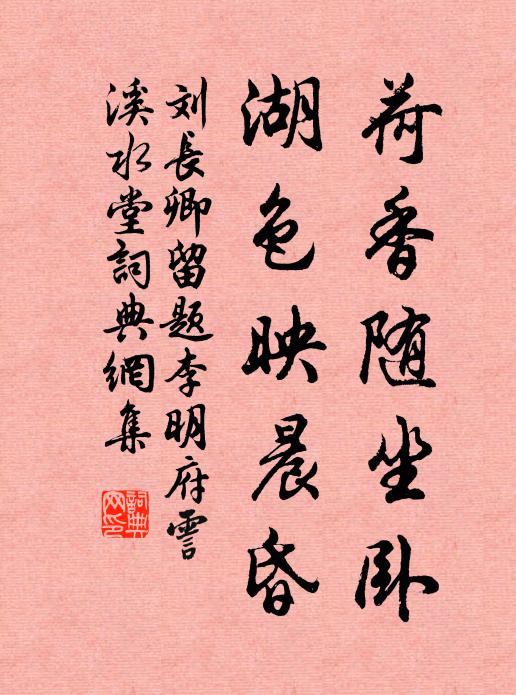 荷香随坐卧
湖色映晨昏
刘長卿留题李明府霅
溪水堂詞典網集
詞典网印